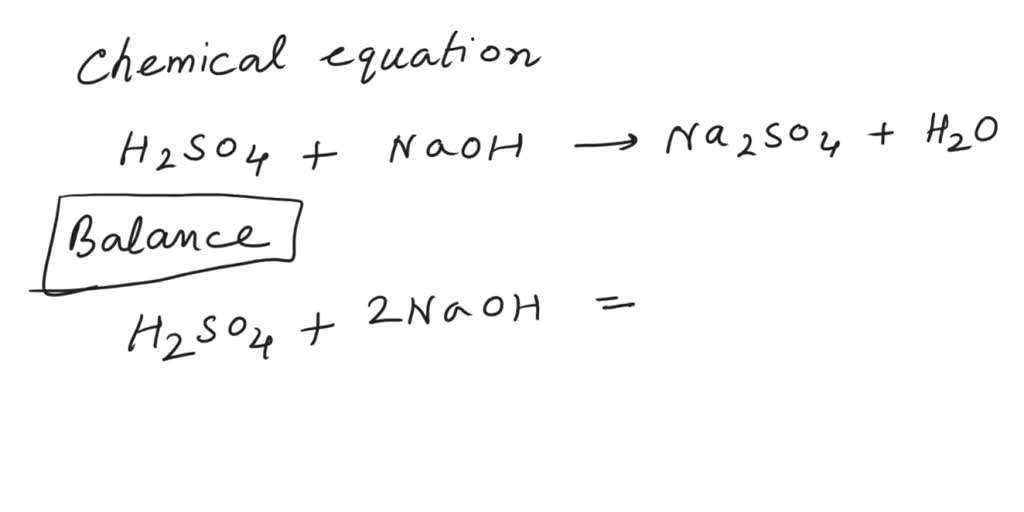 Chemical equation
H2SO4 + NaOH → Na2SO4 + H2O
Balance
H2SO4 + 2NaOH =